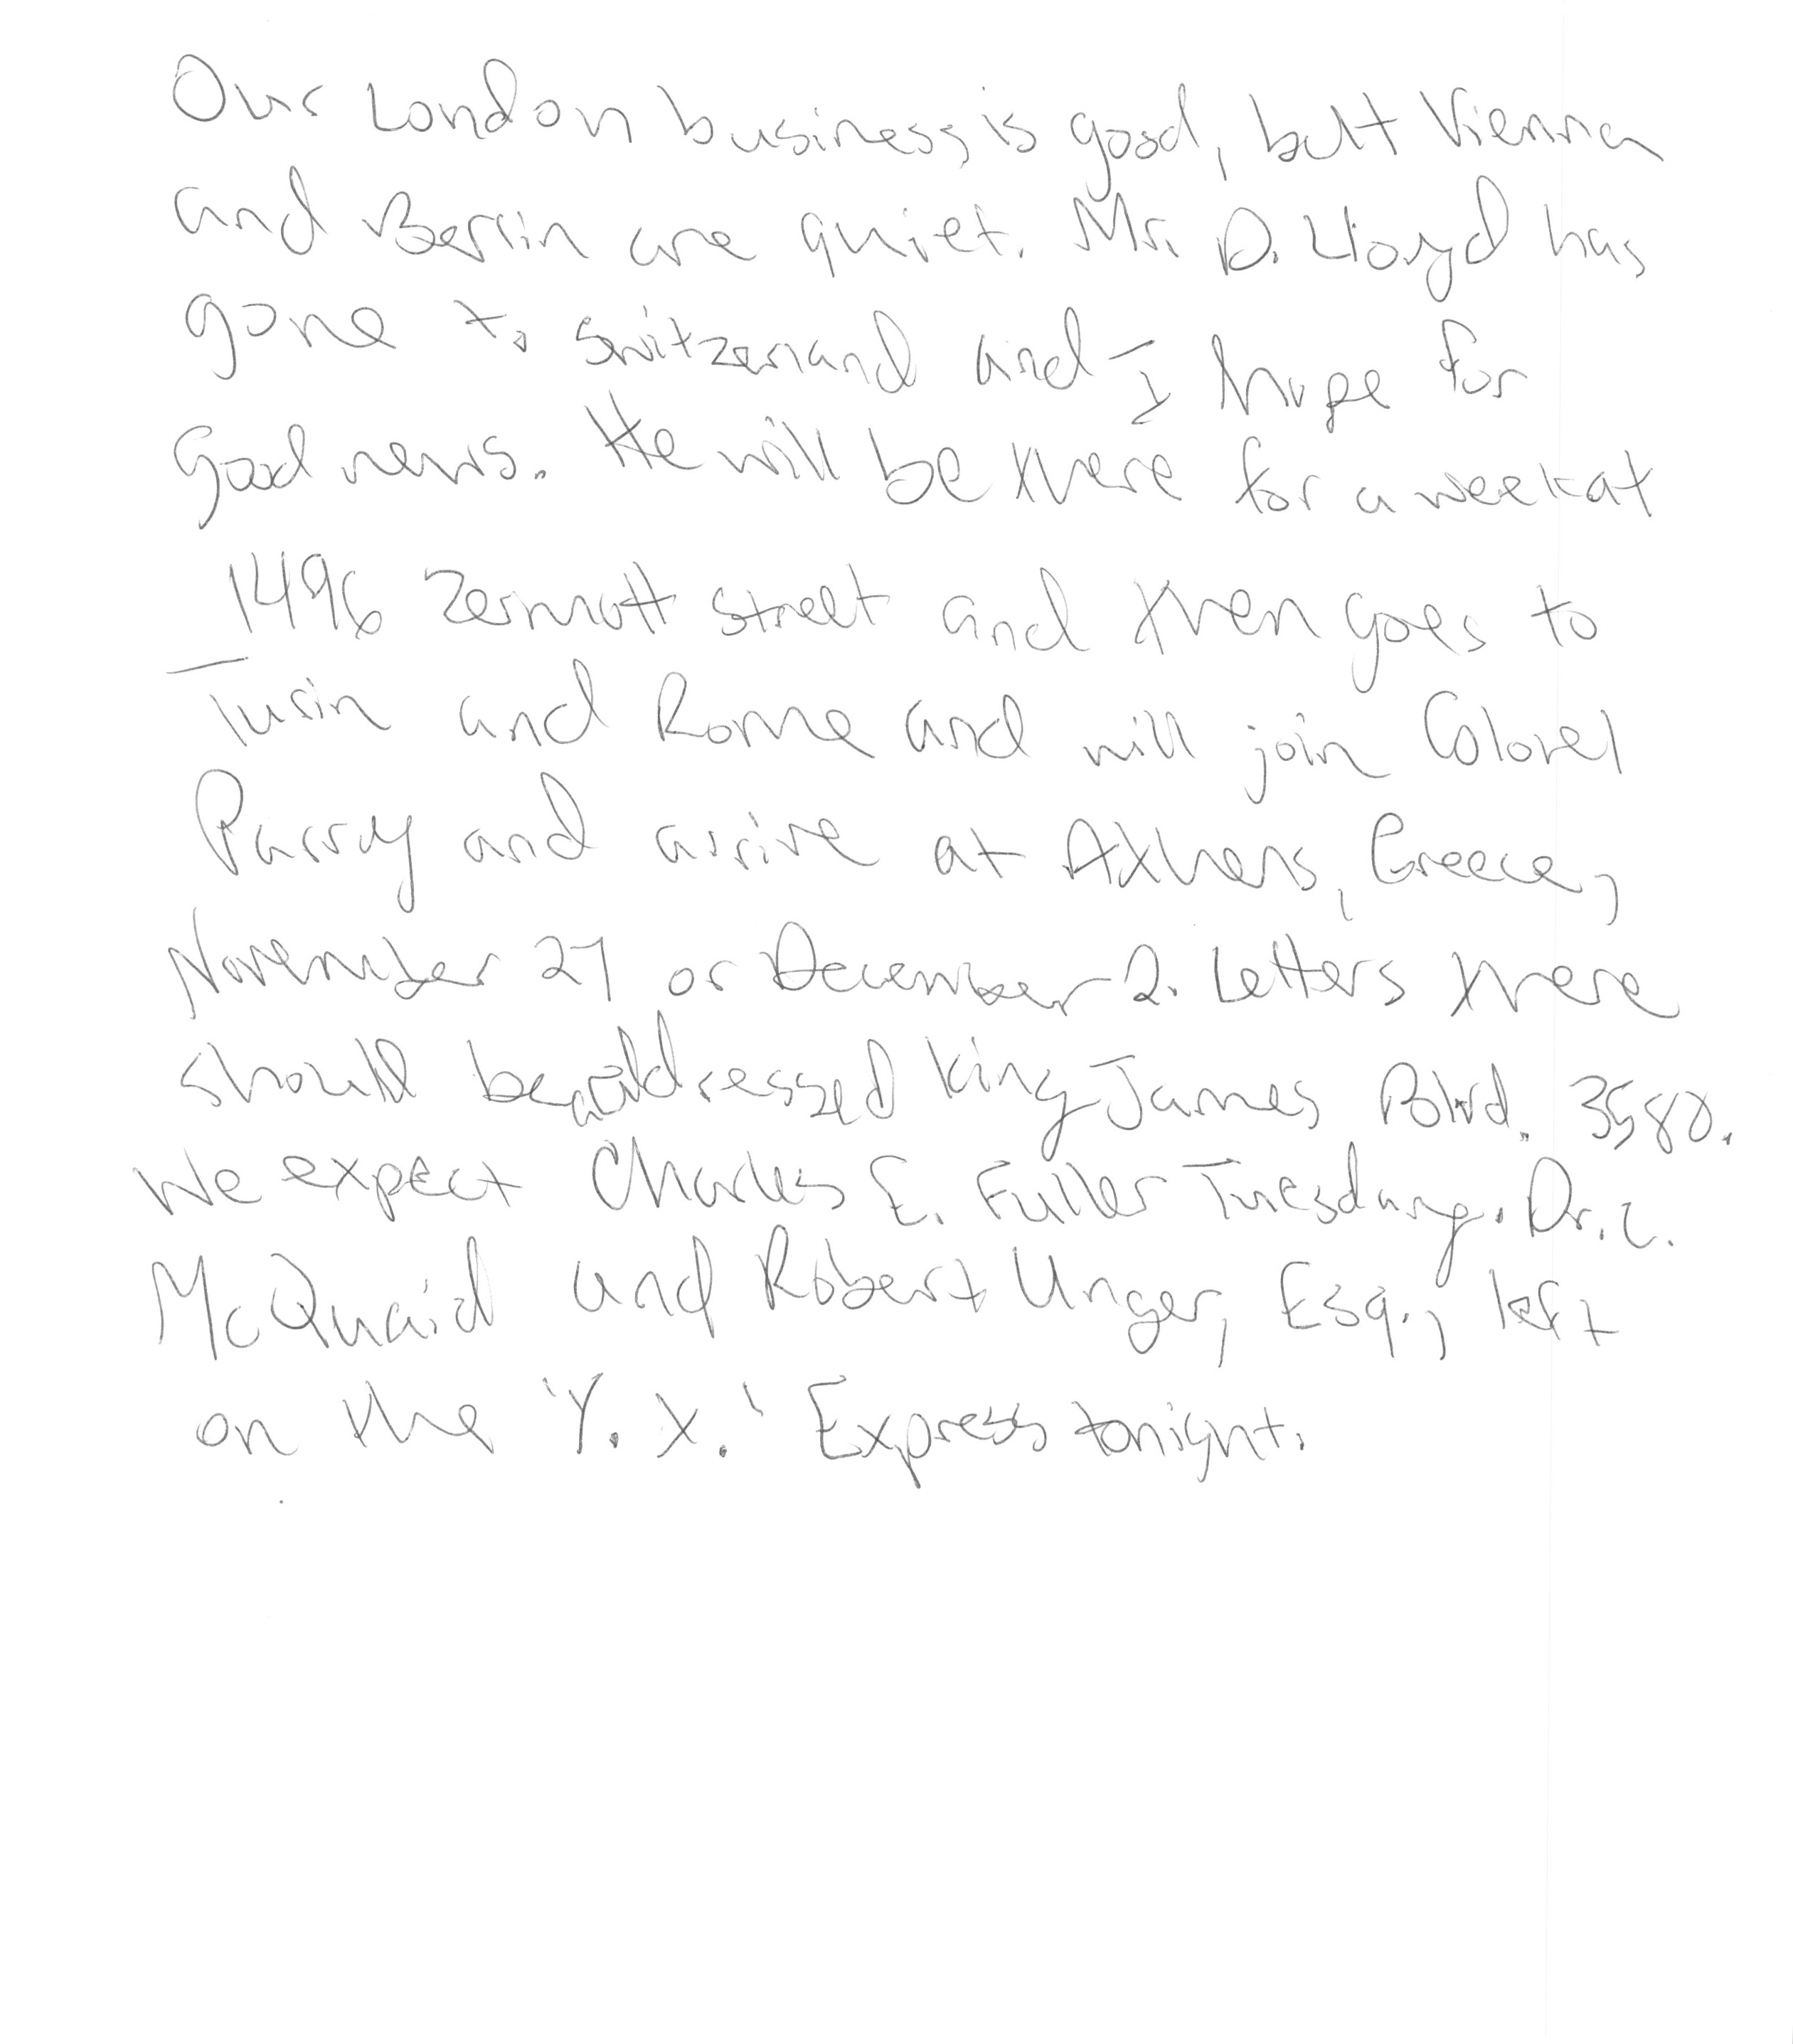 Our London business is good, but Vienna
and Berlin are quiet. Mr. D. Lloyd has
gone to Switzerland and I hope for
good news. He will be there for a week at
1496 Zermott Street and then goes to
Turin and Rome and will join Colonel
Parry and arrive at Athens, Greece,
November 27 or December 2. Letters there
should be addressed King James Blvd. 3580.
We expect Charles E. Fuller Tuesday. Dr. L.
McQuaid and Robert Unger, Esq., left
on the 'Y. X.' Express tonight.